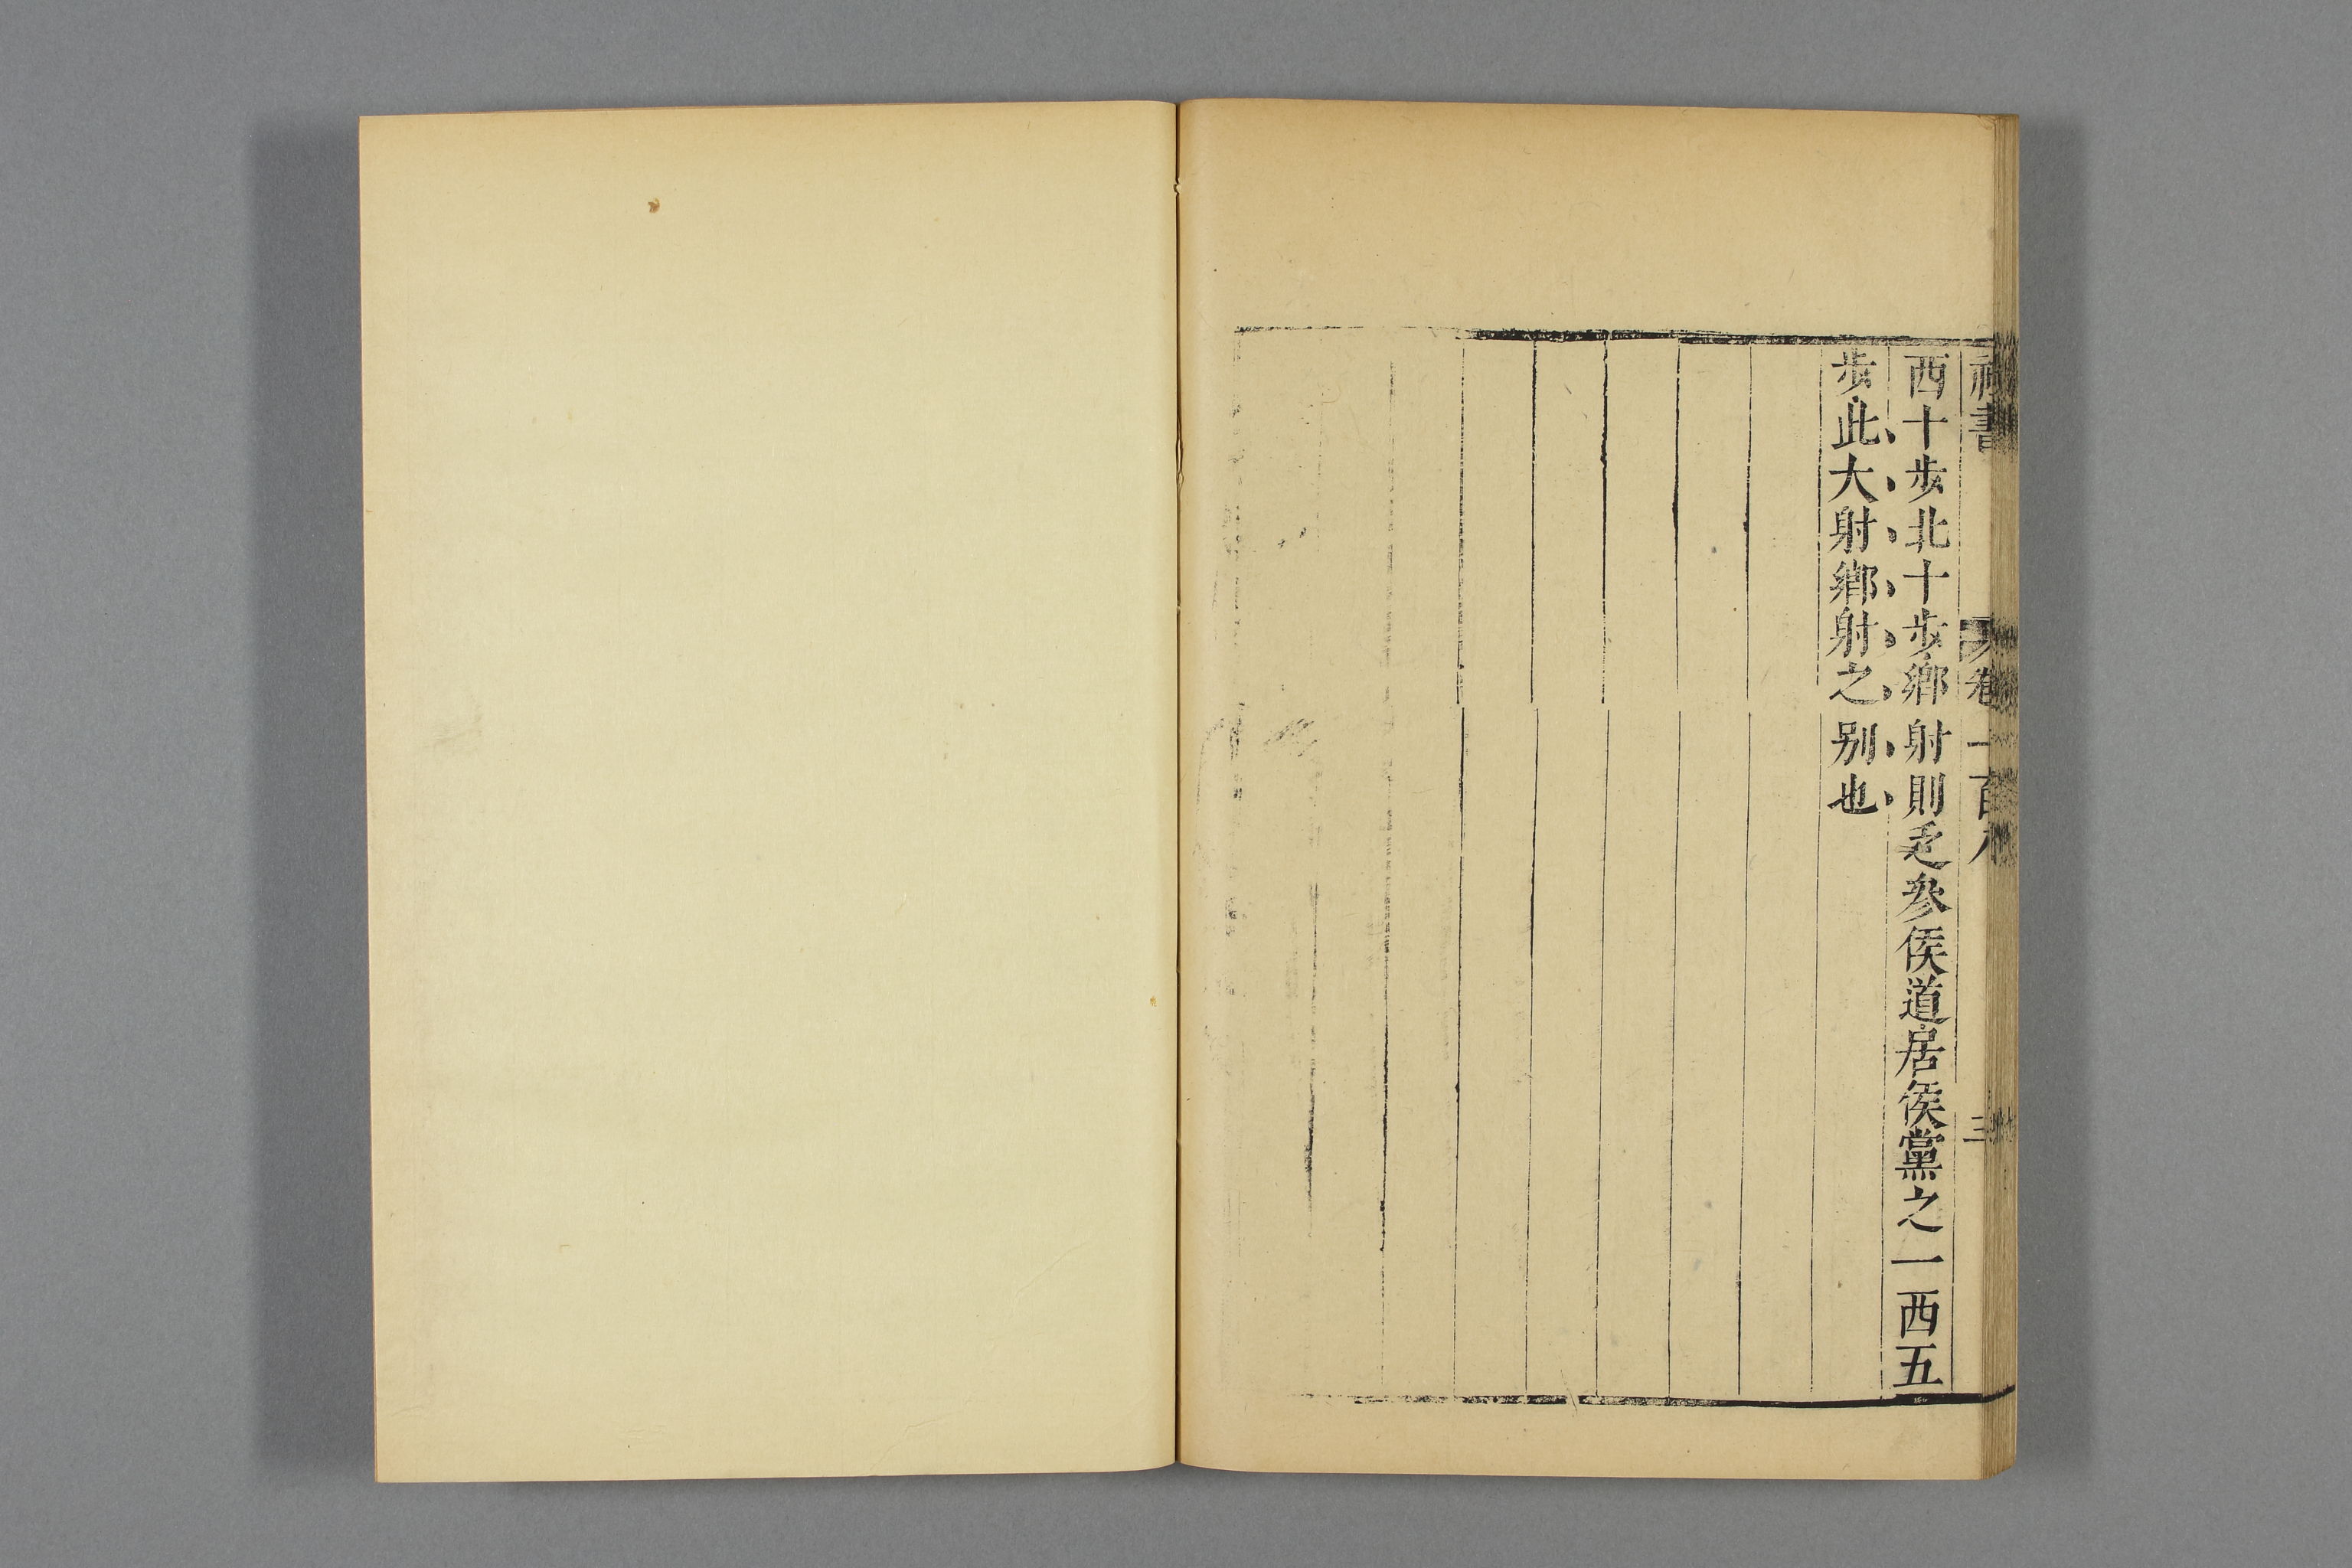 禮書 卷一百八 三
西十步北十步鄉射則乏參侯道居侯黨之一西五
步此大射鄉射之別也